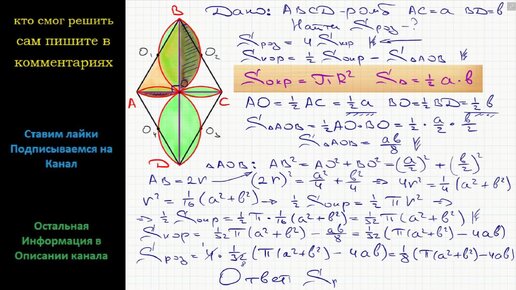 кто смог решить
сам пишите в
комментариях
Ставим лайки
Подписываемся на
Канал
Остальная
Информация в
Описании канала
B
O₁ O₂
A O C
O₄ O₃
D
Дано: ABCD - ромб AC=a BD=b
Найти Sроз - ?
Sроз = 4 Sкор
Sкор = ½ Sокр - S△AOB
Sокр = πR² S△ = ½ a·b
AO = ½ AC = ½ a BO = ½ BD = ½ b
S△AOB = ½ AO·BO = ½ · a/2 · b/2
S△AOB = ab/8
△AOB: AB² = AO² + BO² = (a/2)² + (b/2)²
AB = 2r (2r)² = a²/4 + b²/4 → 4r² = ¼(a²+b²)
r² = 1/16 (a²+b²) → ½ Sокр = ½ πr² →
→ ½ Sокр = ½ π · 1/16 (a²+b²) = 1/32 π(a²+b²)
Sкор = 1/32 π(a²+b²) - ab/8 = 1/32 (π(a²+b²) - 4ab)
Sроз = 4 · 1/32 (π(a²+b²) - 4ab) = 1/8 (π(a²+b²) - 4ab)
Ответ Sр